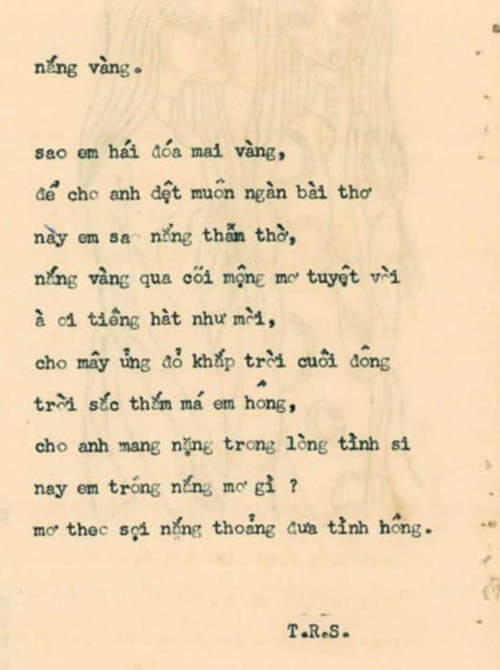 nắng vàng.
sao em hái đóa mai vàng,
để cho anh dệt muôn ngàn bài thơ
này em sao nắng thẫn thờ,
nắng vàng qua cõi mộng mơ tuyệt vời
à ơi tiếng hát như mời,
cho mây ửng đỏ khắp trời cuối đông
trời sắc thắm má em hồng,
cho anh mang nặng trong lòng tình si
nay em trông nắng mơ gì ?
mơ theo sợi nắng thoảng đưa tình hồng.
T.R.S.